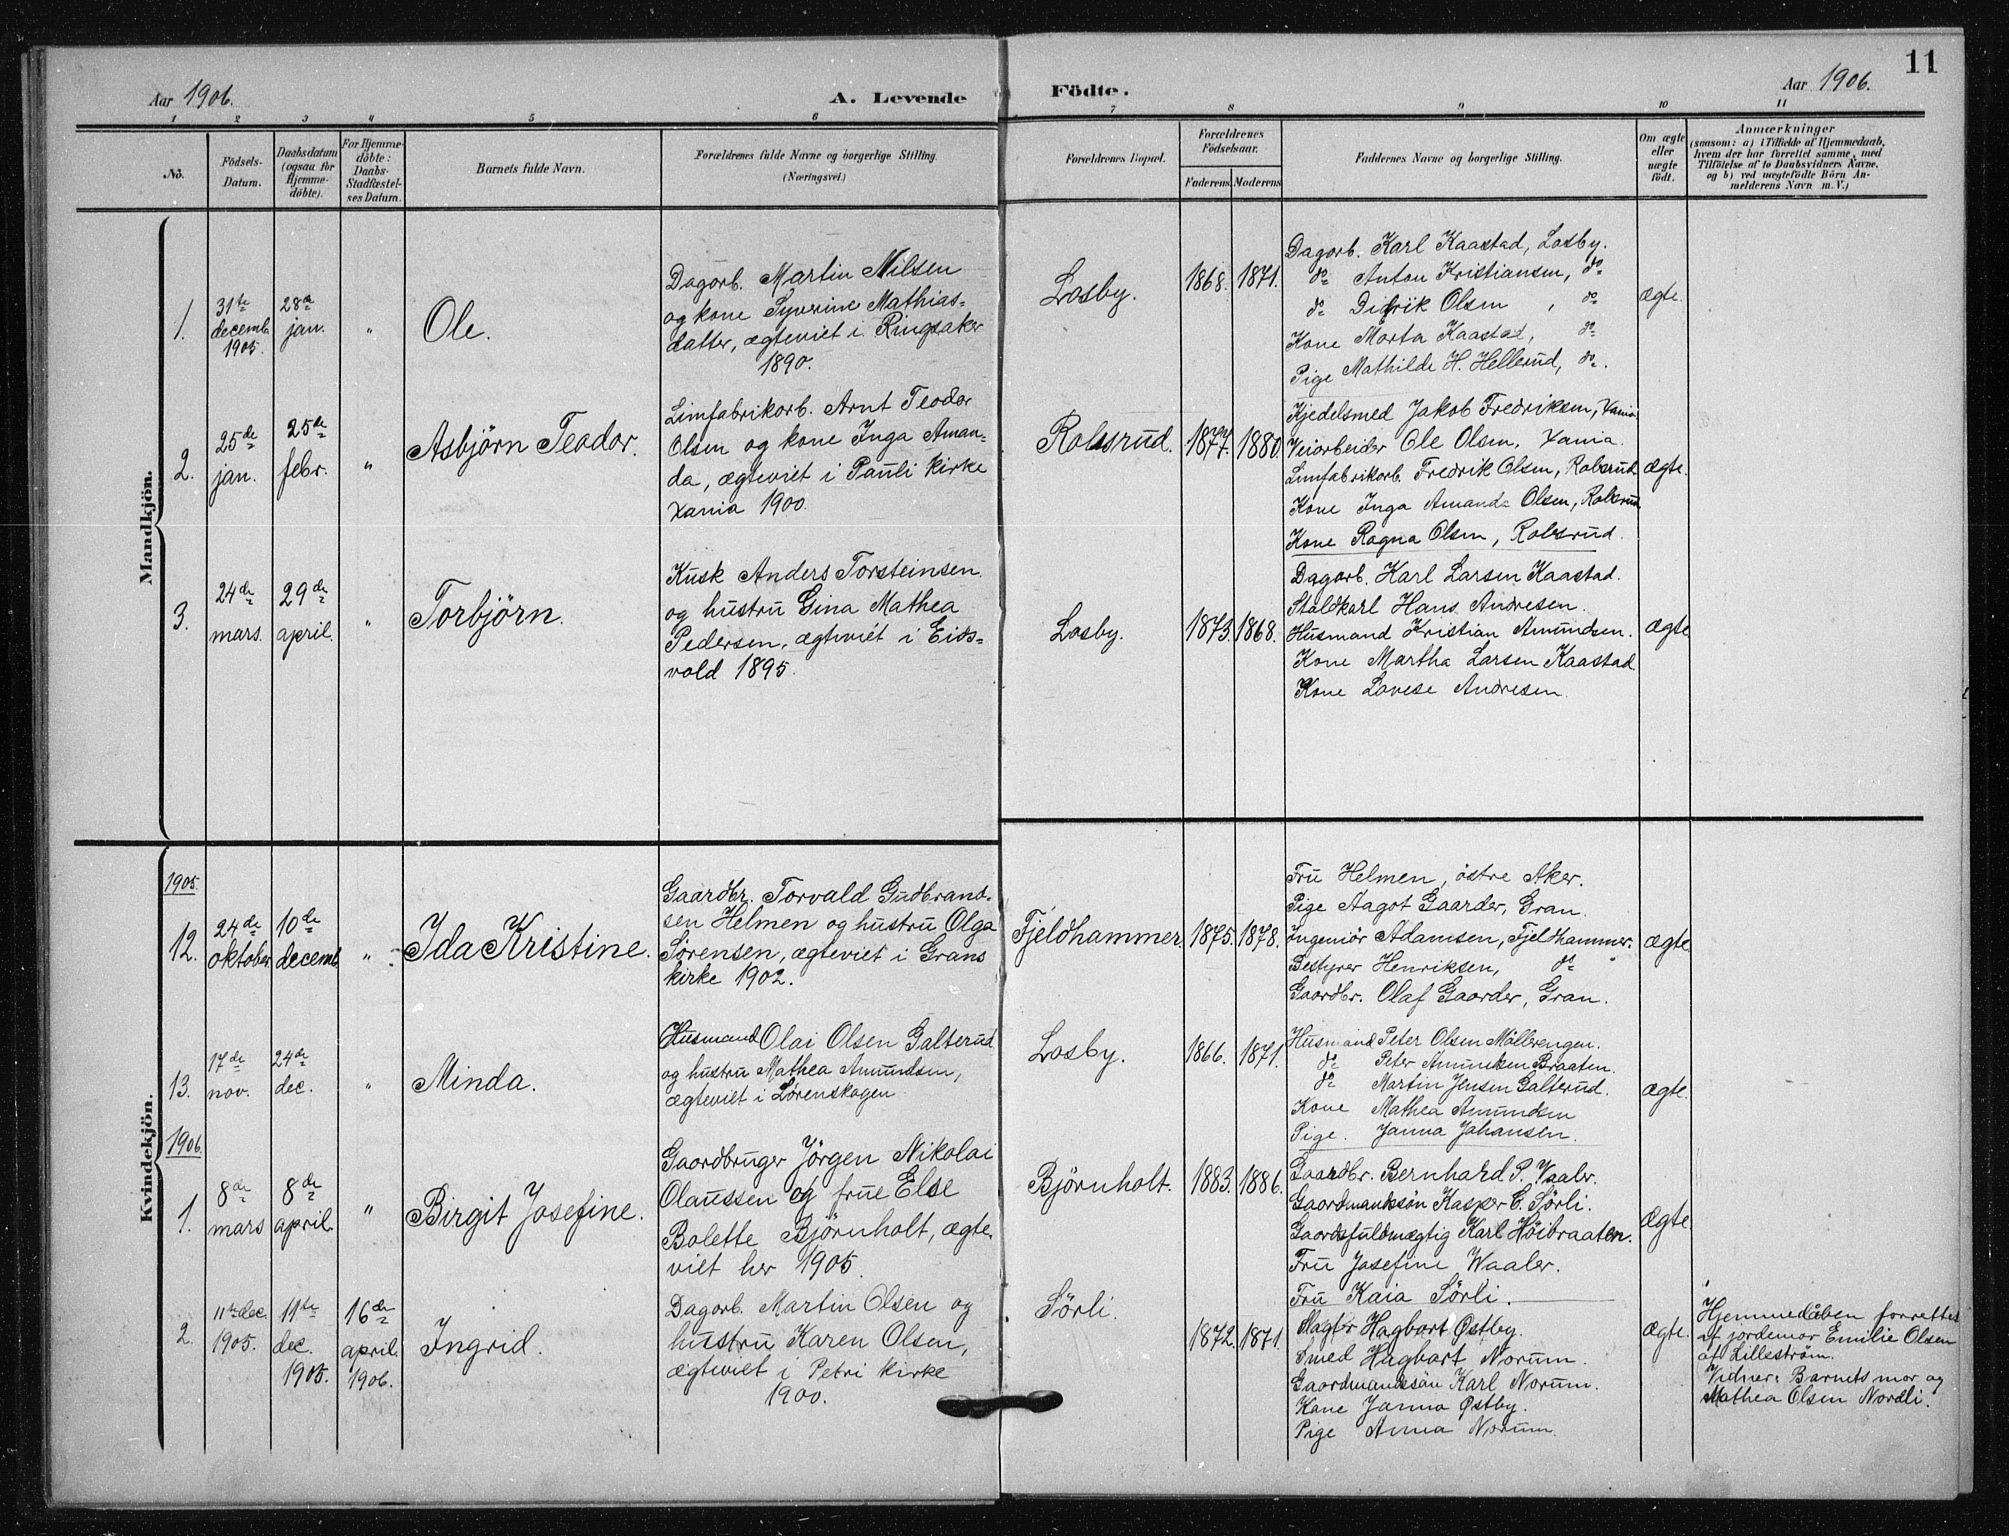 11
Aar 1906.
A. Levende Födte.
Aar 1906.
1 2 3 4 5 6 7 8 9 10 11
No.
Födsels-
Datum.
Daabsdatum
(ogsaa for
Hjemme-
döbte).
For Hjemme-
döbte:
Daabs-
Stadfæstel-
ses Datum.
Barnets fulde Navn.
Forældrenes fulde Navne og borgerlige Stilling.
(Næringsvei.)
Forældrenes Bopæl.
Forældrenes
Födselsaar.
Faderens Moderens
Faddernes Navne og borgerlige Stilling.
Om ægte
eller
uægte
födt.
Anmærkninger
(saasom: a) i Tilfælde af Hjemmedaab,
hvem der har forrettet samme, med
Tilföielse af to Daabsvidners Navne,
og b) ved uægtefödte Börn An-
melderens Navn m. V.)
Mandkjön.
1.
31te
decemb.
1905.
28de
jan.
"
Ole.
Dagarb. Martin Nilsen
og kone Syverine Mathias-
datter, ægteviet i Ringsaker
1890.
Losby.
1868. 1871.
Dagarb. Karl Kaastad, Losby.
do Anton Kristiansen, do
do Didrik Olsen, do
Kone Marta Kaastad, do
Pige Mathilde H. Hellerud, do.
ægte.
2.
25de
jan.
25de
febr.
"
Asbjörn Teodor.
Limfabrikarb. Arnt Teodor
Olsen og kone Inga Aman-
da, ægteviet i Pauli kirke
Xania 1900.
Robsrud.
1877. 1880.
Kjedelsmed Jakob Fredriksen, Xania
Veiarbeider Ole Olsen, Xania.
Limfabrikarb. Fredrik Olsen, Robsrud.
Kone Inga Amanda Olsen, Robsrud
Kone Ragna Olsen, Robsrud.
ægte.
3.
24de
mars.
29de
april.
"
Torbjörn.
Kusk Anders Torsteinsen
og hustru Gina Mathea
Pedersen, ægteviet i Eids-
vold 1895.
Losby.
1873. 1868.
Dagarb. Karl Larsen Kaastad.
Staldkarl Hans Andresen.
Husmand Kristian Amundsen.
Kone Martha Larsen Kaastad
Kone Lovise Andresen.
ægte
Kvindekjön.
1905.
12.
24de
oktober
10de
decemb.
"
Ida Kristine.
Gaardbr. Torvald Gudbrand-
sen Helmen og hustru Olga
Sørensen, ægteviet i Grans
kirke 1902.
Fjeldhammer.
1875. 1878.
Fru Helmen, østre Aker.
Pige Aagot Gaarder, Gran.
Ingeniör Adamsen, Fjeldhammer.
Bestyrer Henriksen, do
Gaardbr. Olaf Gaarder, Gran.
ægte
13.
17de
nov.
24de
dec.
"
Minda.
Husmand Olai Olsen Galterud
og hustru Mathea Amundsen,
ægteviet i Lørenskogen
Losby.
1866. 1871.
Husmand Peter Olsen Möllerengen.
do Peter Amundsen Braaten.
do Martin Jensen Galterud.
Kone Mathea Amundsen
Pige. Janna Johansen.
ægte.
1906.
1.
8de
mars
8de
april.
"
Birgit Josefine.
Gaardbruger Jörgen Nikolai
Olaussen og frue Else
Bolette Bjørnholt, ægte-
viet her 1905.
Bjørnholt.
1883. 1886.
Gaardbr. Bernhard P. Vaaler.
Gaardmandssön Kasper C. Sörli.
Gaardsfuldmægtig Karl Höibraaten.
Fru Josefine Waaler.
Fru Kaia Sörli.
ægte
2.
11te dec.
1905.
11te
dec.
1905.
16de
april.
1906.
Ingrid.
Dagarb. Martin Olsen og
hustru Karen Olsen,
ægteviet i Petri kirke
1900.
Sörli.
1872. 1871.
Slagter Hagbart Østby.
Smed Hagbart Norum.
Gaardmandssön Karl Norum.
Kone Janna Østby.
Pige Anna Norum.
ægte.
Hjemmedåben forrettet
af jordemor Emilie Olsen
af Lilleström.
Vidner: Barnets mor og
Mathea Olsen Nordli.